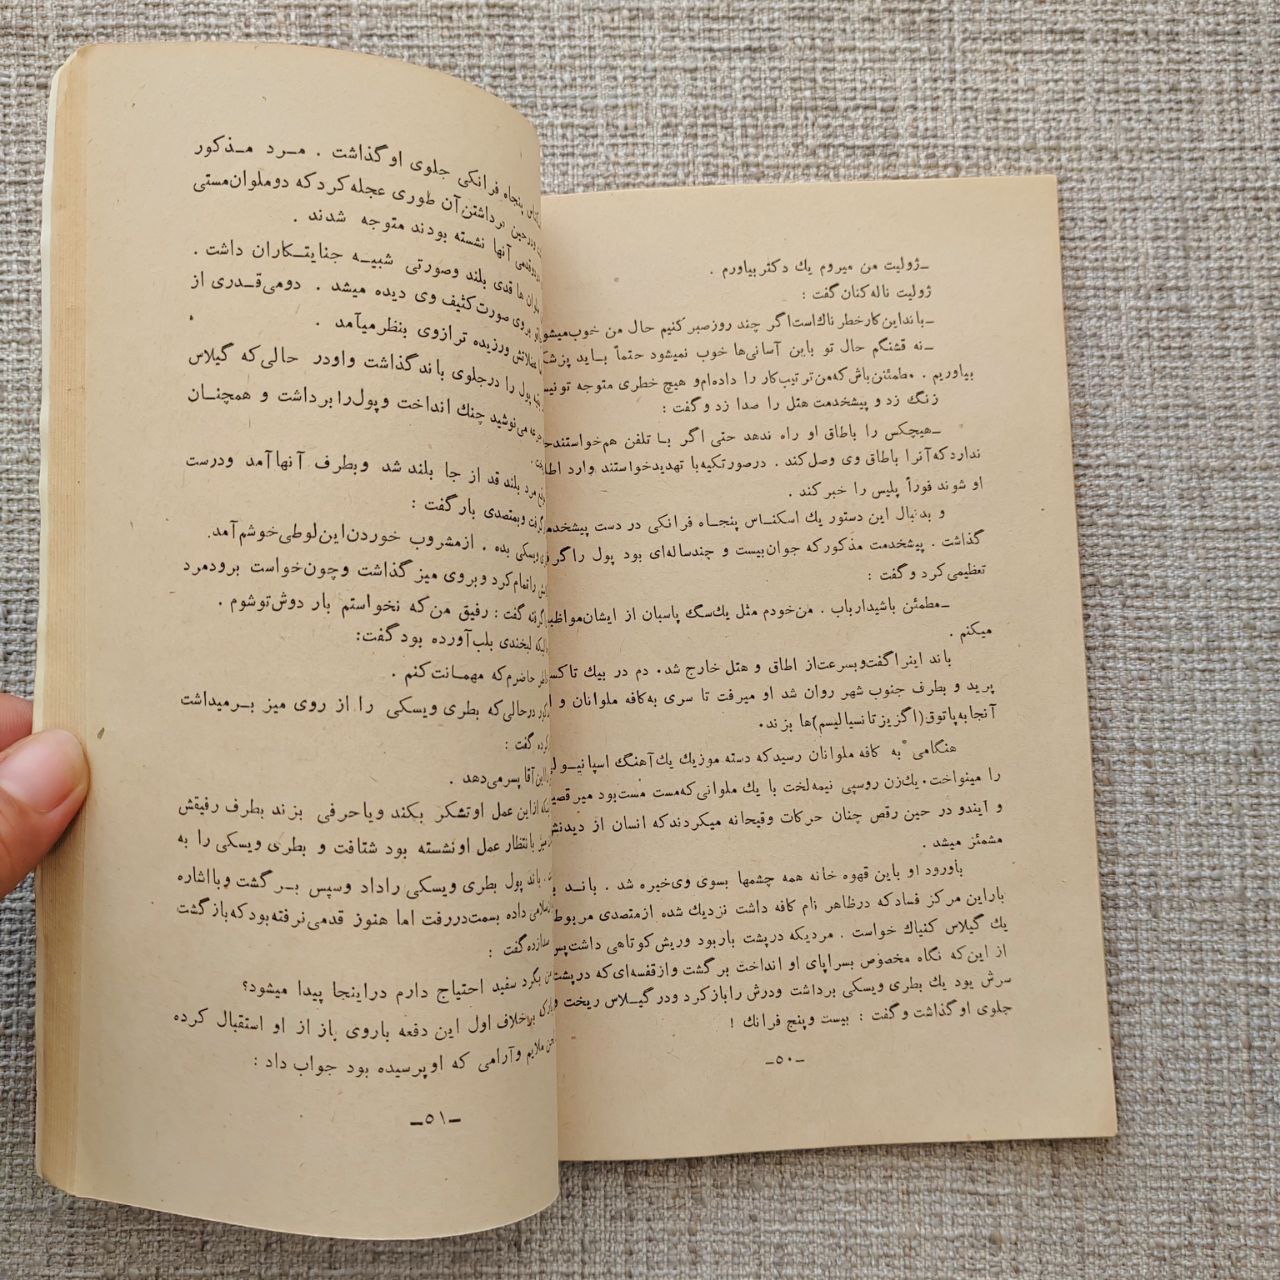 ـژولیت من میروم یك دکتر بیاورم .
ژولیت ناله‌کنان گفت :
ـباند این‌کار خطرناك‌است اگر چند روز صبر کنیم حال من خوب‌میشود
ـنه قشنگم حال تو باین آسانی‌ها خوب نمیشود حتماً باید پزشك
بیاوریم . مطمئن‌باش که‌من ترتیب‌کار را داده‌ام‌و هیچ خطری متوجه تو نیست
زنگ زد و پیشخدمت هتل را صدا زد و گفت :
ـهیچکس را باطاق او راه ندهد حتی اگر با تلفن هم‌خواستند
ندارد که‌آنرا باطاق وی وصل کند . درصورتیکه‌با تهدیدخواستند وارد
او شوند فوراً پلیس را خبر کند .
و بدنبال این دستور یك اسکناس پنجاه فرانکی در دست پیشخدمت
گذاشت . پیشخدمت مذکور که جوان‌بیست و چندساله‌ای بود پول را گرفت
تعظیمی کرد و گفت :
ـمطمئن باشیدارباب . من‌خودم مثل یك‌سگ پاسبان از ایشان‌مواظبت
میکنم .
باند اینرا گفت‌و بسرعت‌از اطاق و هتل خارج شد. دم در بیك تاکسی
پرید و بطرف جنوب شهر روان شد او میرفت تا سری به‌کافه ملوانان و
آنجا به‌پاتوق(اگزیزتانسیالیسم)ها بزند.
هنگامی به کافه ملوانان رسید که دسته موزیك یك‌آهنگ اسپانیولی
را مینواخت. یك‌زن روسپی نیمه‌لخت با یك ملوانی‌که‌مست مست‌بود میرقصید
و ایندو در حین رقص چنان حرکات وقیحانه میکردند که انسان از دیدنش
مشمئز میشد .
باورود او باین قهوه خانه همه چشمها بسوی وی‌خیره شد . باند
باراین مرکز فساد که درظاهر نام کافه داشت نزدیك شده ازمتصدی مربوطه
یك گیلاس کنیاك خواست . مردیکه درپشت باربود وریش‌کوتاهی داشت‌پس
از این‌که نگاه مخصوص بسراپای او انداخت برگشت وازقفسه‌ای‌که درپشت
سرش بود یك بطری ویسکی برداشت ودرش را باز کرد ودر گیلاس ریخت و
جلوی او گذاشت و گفت : بیست و پنج فرانك !
ـ۵۰ـ
پنجاه فرانکی جلوی او گذاشت . مرد مذکور
ودرحین برداشتن‌آن طوری عجله‌کرد که دوملوان‌مستی
قدمی آنها نشسته بودند متوجه شدند .
قدی بلند وصورتی شبیه جنایتکاران داشت .
روی صورت‌کثیف وی دیده میشد . دومی‌قدری از
ورزیده ترازوی بنظرمیآمد .
پول را درجلوی باند گذاشت واودر حالی‌که گیلاس
می‌نوشید چنك انداخت وپول‌را برداشت و همچنان
مرد بلند قد از جا بلند شد وبطرف آنهاآمد ودرست
گرفت وبمتصدی بار گفت :
ویسکی بده . ازمشروب خوردن‌این‌لوطی‌خوشم‌آمد.
راتمام‌کرد وبروی میز گذاشت وچون‌خواست برودمرد
گرفته گفت : رفیق من‌که نخواستم بار دوش‌توشوم .
لبخندی بلب‌آورده بود گفت:
حاضرم‌که مهمانت‌کنم .
درحالی‌که بطری ویسکی را از روی میز برمیداشت
گفت :
این‌آقا پسرمی‌دهد .
ازاین عمل اوتشکر بکند ویاحرفی بزند بطرف رفیقش
بانتظار عمل اونشسته بود شتافت و بطری ویسکی را به
باند پول بطری ویسکی راداد وسپس برگشت وبااشاره
سلامی داده بسمت‌دررفت اما هنوز قدمی‌نرفته‌بود که‌بازگشت
گفت :
بگرد سفید احتیاج دارم دراینجا پیدا میشود؟
برخلاف اول این دفعه باروی باز از او استقبال کرده
ملایم وآرامی که اوپرسیده بود جواب داد :
ـ۵۱ـ